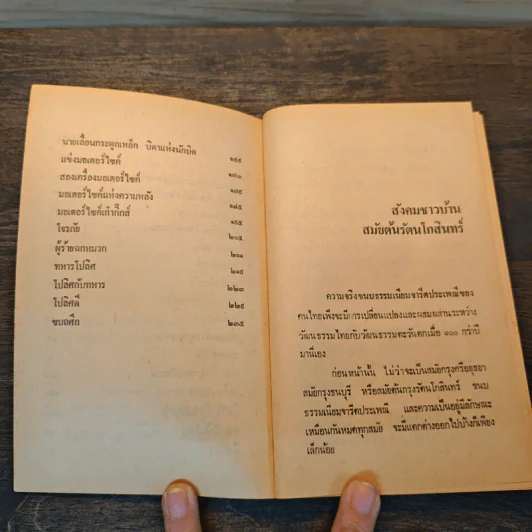 นายเลื่อนกระดูกเหล็ก บิดาแห่งนักบิด
แข่งมอเตอร์ไซค์
สองเครื่องมอเตอร์ไซค์
มอเตอร์ไซค์แห่งความหลัง
มอเตอร์ไซค์เก๋ากึ๊กส์
โจรภัย
ผู้ร้ายฉกหมวก
ทหารโปลิศ
โปลิศกับทหาร ๒๒๓
โปลิศดี ๒๒๙
ขบถศึก ๒๓๕
สังคมชาวบ้าน
สมัยต้นรัตนโกสินทร์
ความจริงขนบธรรมเนียมจารีตประเพณีของ
คนไทยเพิ่งจะมีการเปลี่ยนแปลงและผสมผสานระหว่าง
วัฒนธรรมไทยกับวัฒนธรรมตะวันตกเมื่อ ๑๐๐ กว่าปี
มานี่เอง
ก่อนหน้านั้น ไม่ว่าจะเป็นสมัยกรุงศรีอยุธยา
สมัยกรุงธนบุรี หรือสมัยต้นกรุงรัตนโกสินทร์ ขนบ
ธรรมเนียมจารีตประเพณี และความเป็นอยู่มีลักษณะ
เหมือนกันหมดทุกสมัย จะมีแตกต่างออกไปบ้างก็เพียง
เล็กน้อย